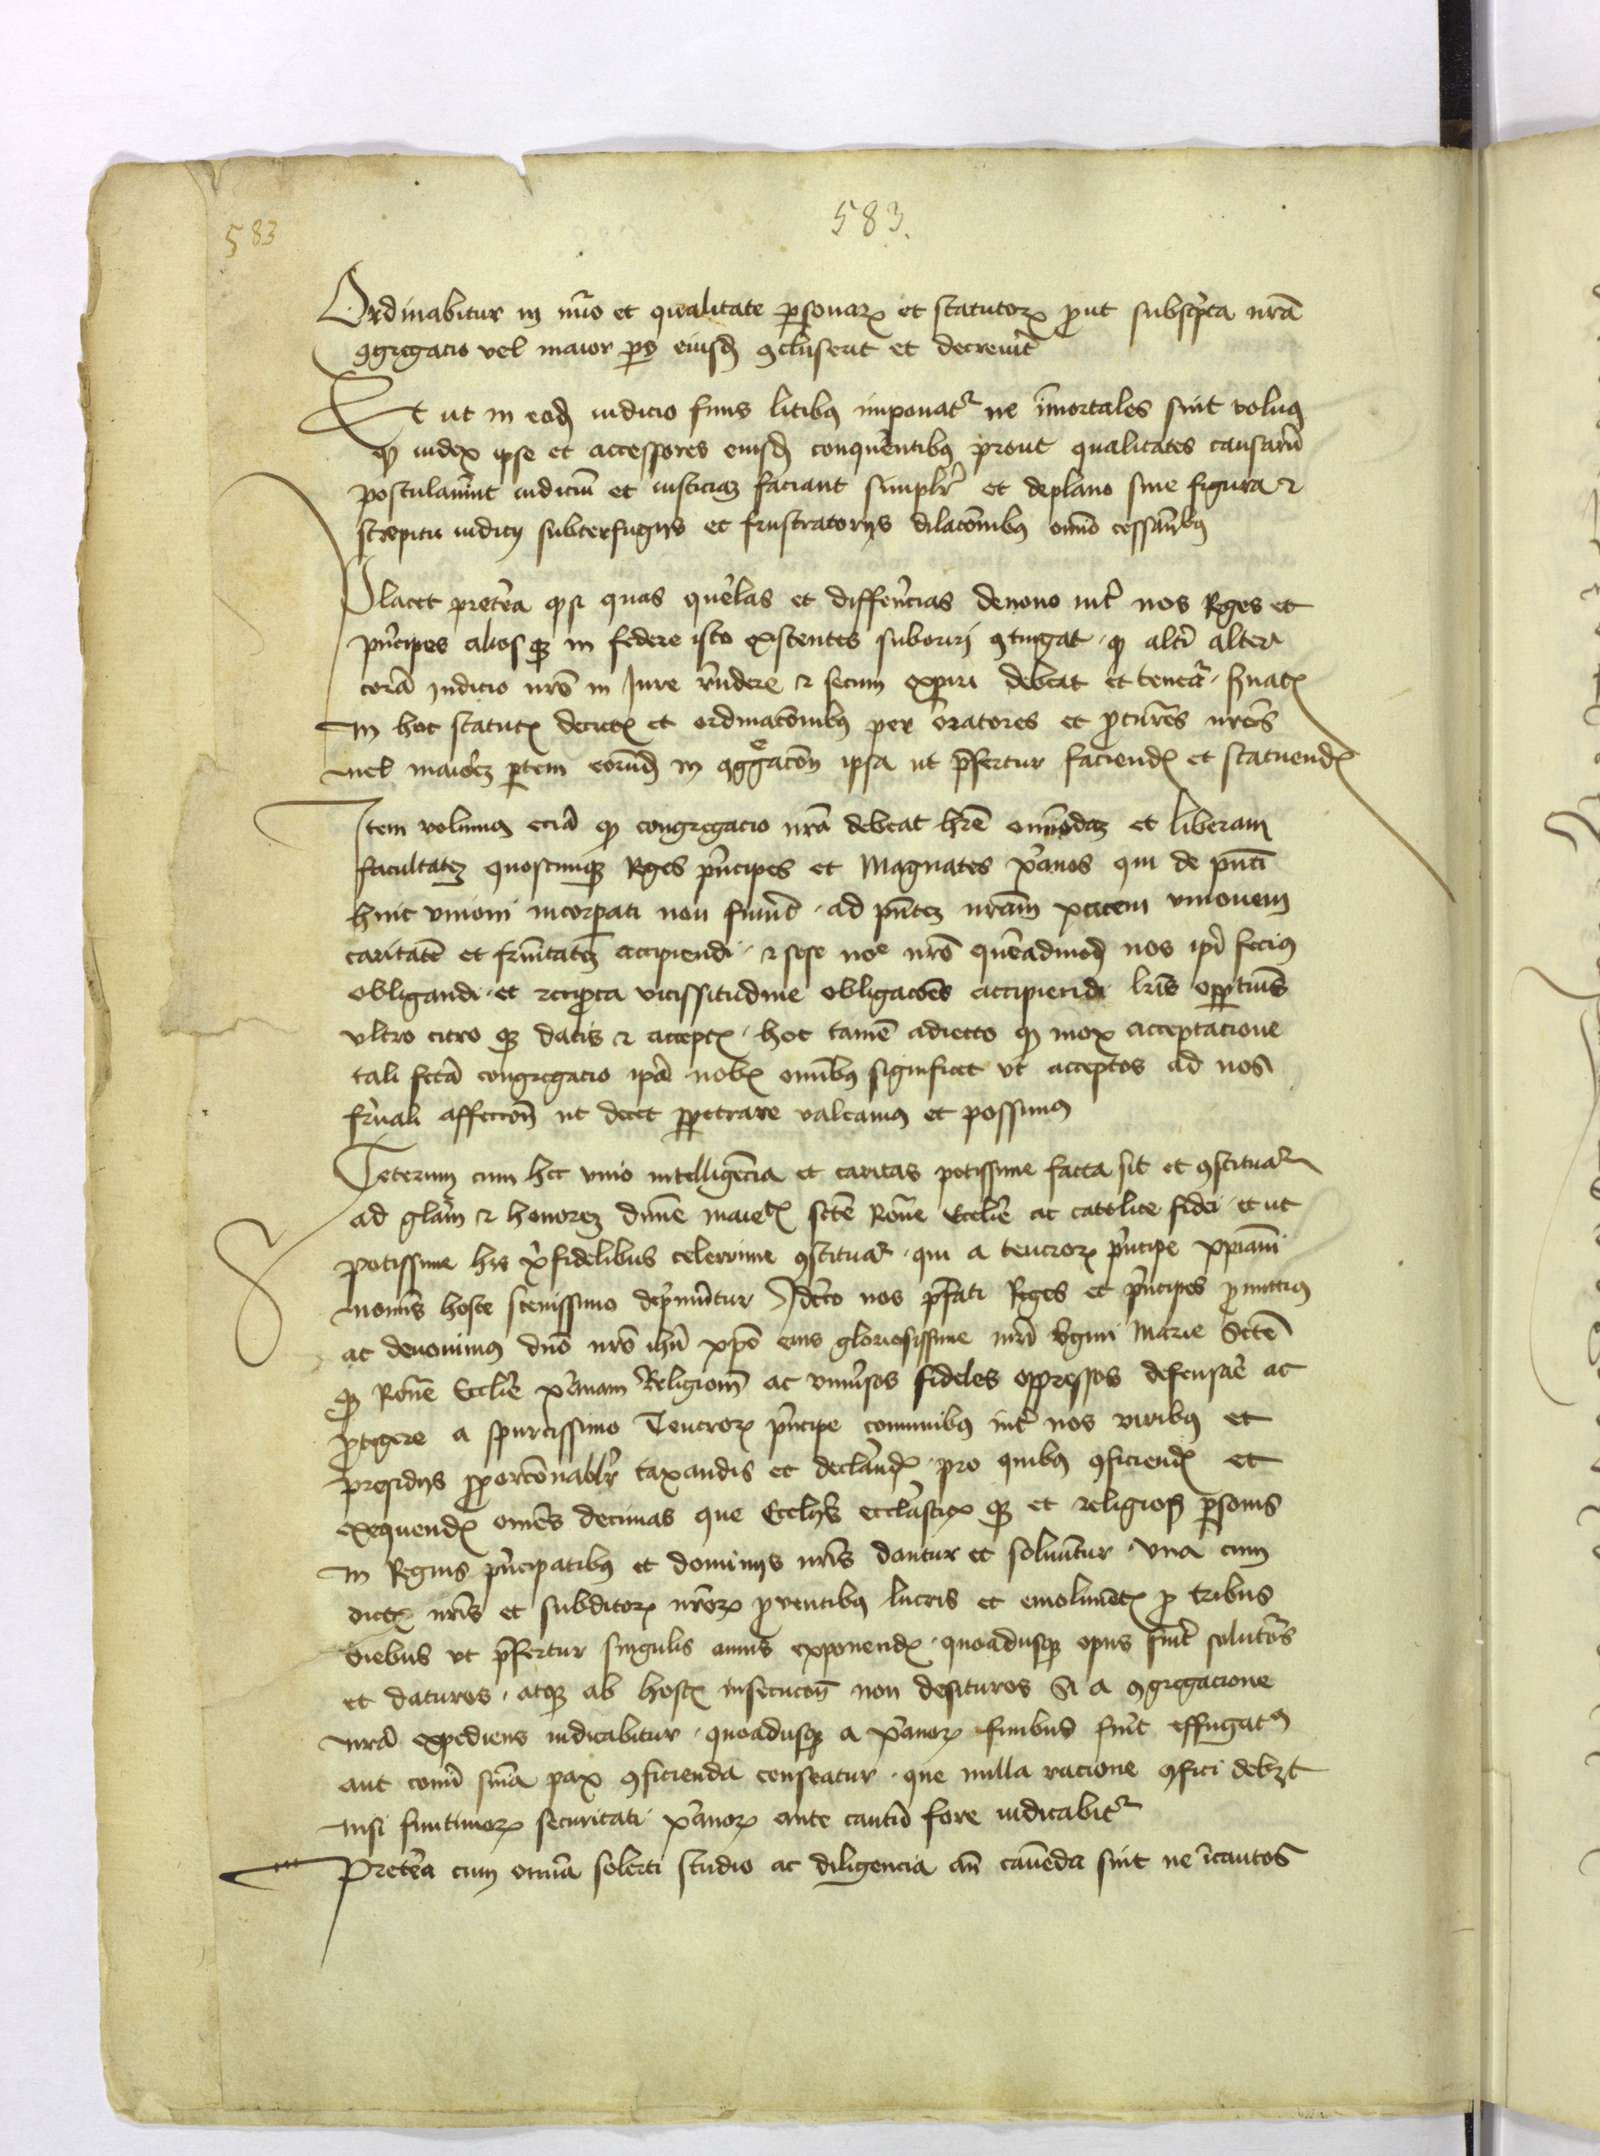 583
583.
Ordinabitur in nu͂o et qualitate personarꝝ et statutorꝝ ꝓut subscp̃ta nr̃a
ꝯgregacio vel maior ps eiusd ꝯcluserit et decreuit
Et ut in eod iudicio finis litibꝰ imponatr ne i͂mortales sint volumꝰ
ꝙ iudex ipse et accessores eiusd conquer͂entibꝰ prout qualitates causaru͂
postulau͂int iudiciu͂ et iusticiaꝫ faciant simplr͂ et deplano sine figura ⁊
strepitu iudicij subterfugijs et frustratorijs dilaco͂nibꝰ omi͂o cessan͂bꝰ
Placet pretea͂ ꝙ si quas quer͂elas et differ͂encias denouo int͂ nos Reges et
pn͂cipes aliosqꝫ in federe isto existentes suboriri ꝯtingat · ꝙ alt͂i alter
cora͂ Judicio nr͂o in Jure rn͂dere ⁊ secum experiri debeat et teneat͂ · s͂uatꝭ
In hoc statutꝭ decretꝭ et ordinaco͂nibꝰ per oratores et ꝓcur͂es nr͂os
uel maior͂eꝫ ptem eorund in ꝯggaco͂n ipsa ut p͂fertur faciendꝭ et statuendꝭ
Item volumꝰ ecia͂ ꝙ congregacio nr͂a debeat hr͂e omi͂odaꝫ et liberam
facultateꝫ quoscumqꝫ Reges pn͂cipes et Magnates xp͂ianos qui de pn͂ti
huic vnioni incorpati non fuert͂ · ad pn͂teꝫ nr͂am pacem vnionem
caritate͂ et frn͂itateꝫ accipiendi · ⁊ sese noe͂ nr͂o quea͂dmod nos ip͂i fecimꝰ
obligandi · et recip͂ca vicissitudine obligaco͂es accipiendi lr͂is opportunis
vltro citro qꝫ datis ⁊ acceptꝭ · hoc tame͂ adiecto ꝙ mox acceptacione
tali fc͂ta congregacio ip͂a nobꝭ omi͂bꝰ significet vt acceptos ad nos
fr͂nali affeccio͂n ut decet pertrare valeamꝰ et possimꝰ
Ceterum cum hec vnio intellige͂cia et caritas potissime facta sit et ꝯstituatr
ad glam͂ ⁊ honoreꝫ diui͂e maietꝭ sc͂te Rom͂e Eccli͂e ac catolice fidei · et ut
potissime his xp͂ifidelibus celerrime ꝯstituatr · qui a teucrorꝝ pn͂cipe xpi͂ani
nomi͂s hoste seuissimo dep͂mu͂tur Ideco͂ nos p͂fati Reges et pn͂cipes ꝓmittimꝰ
ac deuouimus dn͂o nr͂o ihu͂ xp͂o eius gloriosissime mr͂i vgini Marie Sc͂te
qꝫ Rom͂e Eccli͂e xp͂ianam Religione͂ ac vniu͂sos fideles oppressos defensar͂e ac
ꝓtegere a spurcissimo Teucrorꝝ pn͂cipe comunibꝰ int͂ nos viribꝰ et
presidijs ꝓporco͂nablr͂ taxandis et declan͂dꝭ · pro quibꝰ ꝯficiendꝭ et
exequendꝭ omn͂es decimas que Ecclijs͂ eccla͂sticꝭ qꝫ et religiosis personis
In Regnis pn͂cipatibꝰ et dominijs nr͂is dantur et soluu͂tur · vna cum
dictꝭ nr͂is et subditorꝝ nr͂orꝝ ꝓventibꝰ lucris et emolume͂tꝭ ꝓ tribus
diebus vt p͂fertur singulis annis exponendꝭ · quoadusqꝫ opus fu͂it soluturos
et daturos · atqꝫ ab hostꝭ insecuco͂n non desituros Si a ꝯgregacione
nr͂a expediens iudicabitur · quoadusqꝫ a xp͂ianorꝝ finibus fu͂it effugatꝰ
aut comi͂ sn͂ia pax ꝯficienda censeatur · que nulla racione ꝯfici debet
nisi finitimorꝝ securitati xp͂ianorꝝ ante cautu͂ fore iudicabitr
Pretea͂ cum omi͂a solerti studio ac diligencia an͂ caue͂da sint ne i͂cautos